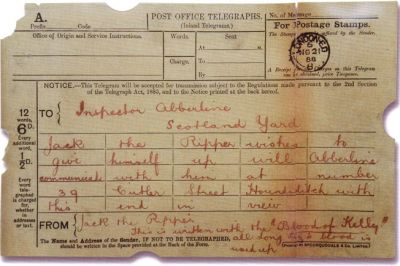 A.
Prefix Code
POST OFFICE TELEGRAPHS.
(Inland Telegrams.)
No. of Message
Office of Origin and Service Instructions.
Words.
Sent
At
To
By
Charge.
For Postage Stamps.
The Stamps
by the Sender.
A Receipt
LONDON E
NO 21
88
NOTICE.—This Telegram will be accepted for transmission subject to the Regulations made pursuant to the 2nd Section
of the Telegraph Act, 1885, and to the Notice printed at the back hereof.
12
words,
6D.
Every
additional
word,
½D.
Every
word
telegraphed
is charged
for,
whether
in
address
or text.
TO
Inspector Abberline
Scotland Yard
Jack the Ripper wishes to
give himself up will Abberline
communicate with him at number
39 Cutler Street Houndsditch with
this end in view
FROM
Jack the Ripper
This is written with the "Blood of Kelly"
all Long Liz's blood is
used up
The Name and Address of the Sender, IF NOT TO BE TELEGRAPHED,
should be written in the Space provided at the Back of the Form.